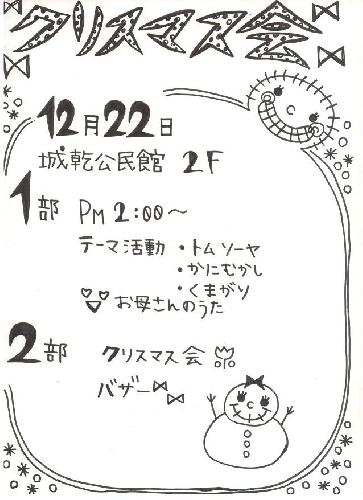 クリスマス会
12月22日
城乾公民館 2F
1部 PM 2:00〜
テーマ活動 ・トムソーヤ
・かにむかし
・くまがり
お母さんのうた
2部 クリスマス会
バザー